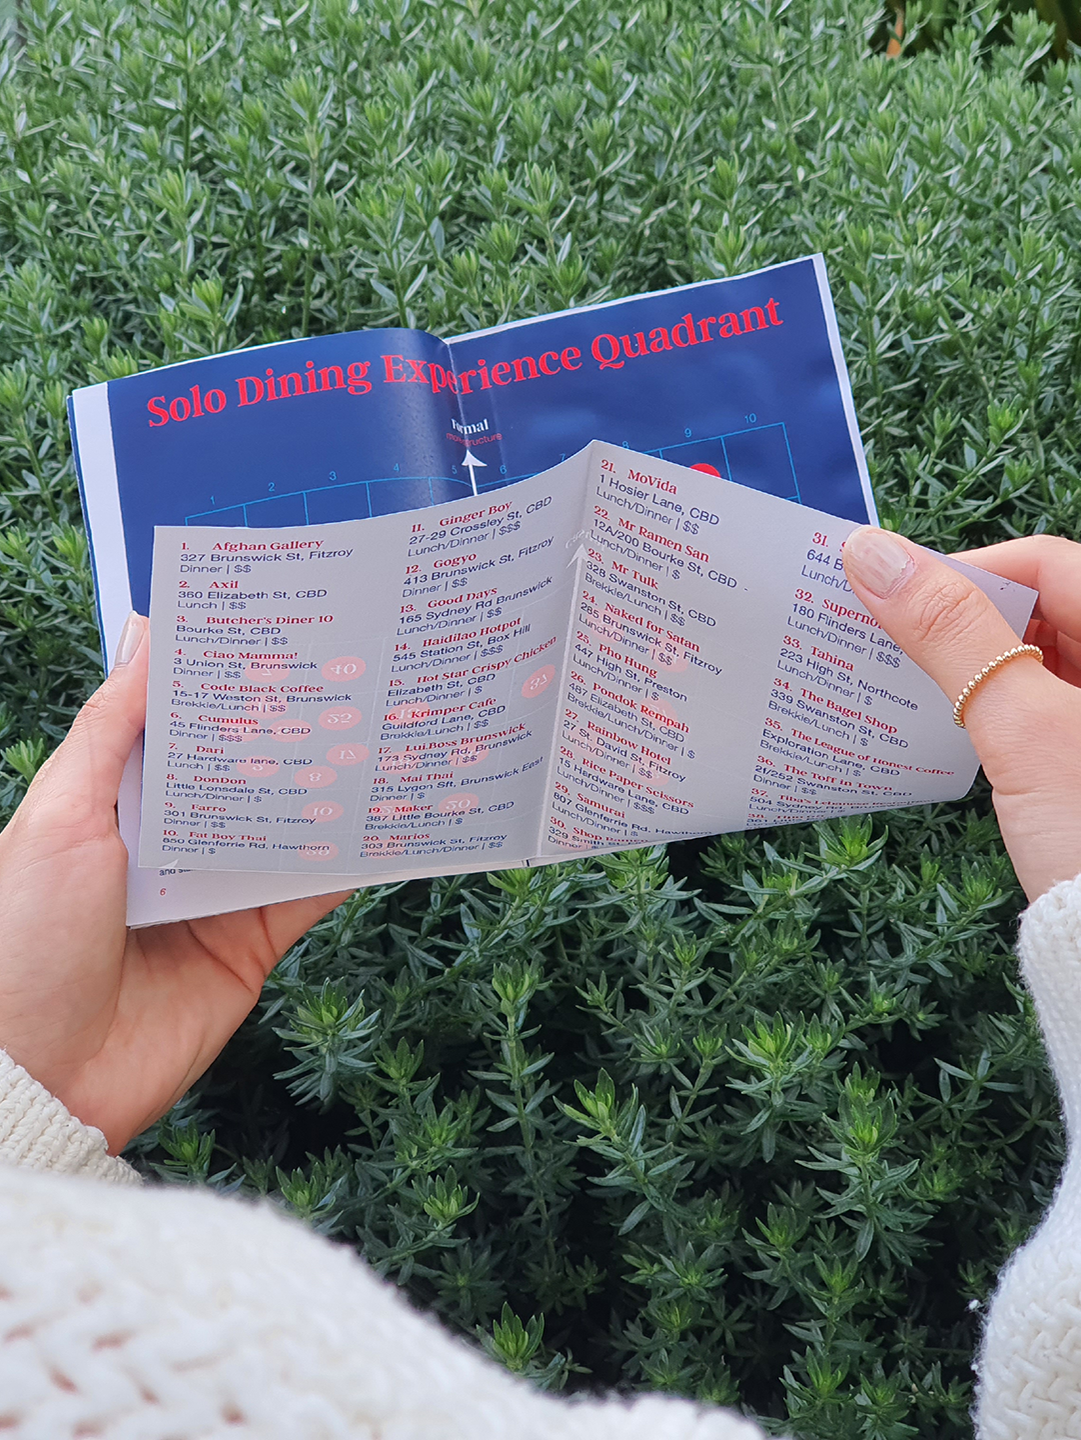 Solo Dining Experience Quadrant
Formal
more structure
1 2 3 4 5 6 7 8 9 10
1. Afghan Gallery
327 Brunswick St, Fitzroy
Dinner | $$
2. Axil
360 Elizabeth St, CBD
Lunch | $$
3. Butcher's Diner 10
Bourke St, CBD
Lunch/Dinner | $$
4. Ciao Mamma!
3 Union St, Brunswick
Dinner | $$
5. Code Black Coffee
15-17 Weston St, Brunswick
Brekkie/Lunch | $$
6. Cumulus
45 Flinders Lane, CBD
Dinner | $$$
7. Dari
27 Hardware lane, CBD
Lunch/Dinner | $
8. DonDon
Little Lonsdale St, CBD
Lunch/Dinner | $
9. Farro
301 Brunswick St, Fitzroy
Dinner | $
10. Fat Boy Thai
650 Glenferrie Rd, Hawthorn
Dinner | $
11. Ginger Boy
27-29 Crossley St, CBD
Lunch/Dinner | $$
12. Gogyo
413 Brunswick St, Fitzroy
Dinner | $$
13. Good Days
165 Sydney Rd Brunswick
Lunch/Dinner | $$
14. Haidilao Hotpot
545 Station St, Box Hill
Lunch/Dinner | $$$
15. Hot Star Crispy Chicken
Elizabeth St, CBD
Lunch/Dinner | $
16. Krimper Cafe
Guildford Lane, CBD
Brekkie/Lunch | $$
17. Lui.Boss Brunswick
173 Sydney Rd, Brunswick
Lunch/Dinner | $$
18. Mai Thai
315 Lygon Sft, Brunswick East
Dinner | $
19. Maker
387 Little Bourke St, CBD
Brekkie/Lunch | $
20. Marios
303 Brunswick St, Fitzroy
Brekkie/Lunch/Dinner | $$
21. MoVida
1 Hosier Lane, CBD
Lunch/Dinner | $$
22. Mr Ramen San
12A/200 Bourke St, CBD
Lunch/Dinner | $
23. Mr Tulk
328 Swanston St, CBD
Brekkie/Lunch | $$
24. Naked for Satan
285 Brunswick St, Fitzroy
Lunch/Dinner | $$
25. Pho Hung
447 High St, Preston
Lunch/Dinner | $$
26. Pondok Rempah
487 Elizabeth St, CBD
Brekkie/Lunch/Dinner | $
27. Rainbow Hotel
27 St. David St, Fitzroy
Lunch/Dinner | $$
28. Rice Paper Scissors
15 Hardware Lane, CBD
Lunch/Dinner | $$$
29. Samurai
807 Glenferrie Rd, Hawthorn
Lunch/Dinner | $$
30. Shop Ramen
329 Smith St
Dinner
31.
644
Lunch/D
32.
180 Flinders Lane,
Lunch/Dinner | $$$
33. Tahina
223 High St, Northcote
Lunch/Dinner | $
34. The Bagel Shop
339 Swanston St, CBD
Brekkie/Lunch | $
35. The League of Honest Coffee
Exploration Lane, CBD
Brekkie/Lunch | $
36. The Toff in Town
2f/252 Swanston St, CBD
Dinner | $$
37.
504 Sydney
38.
6